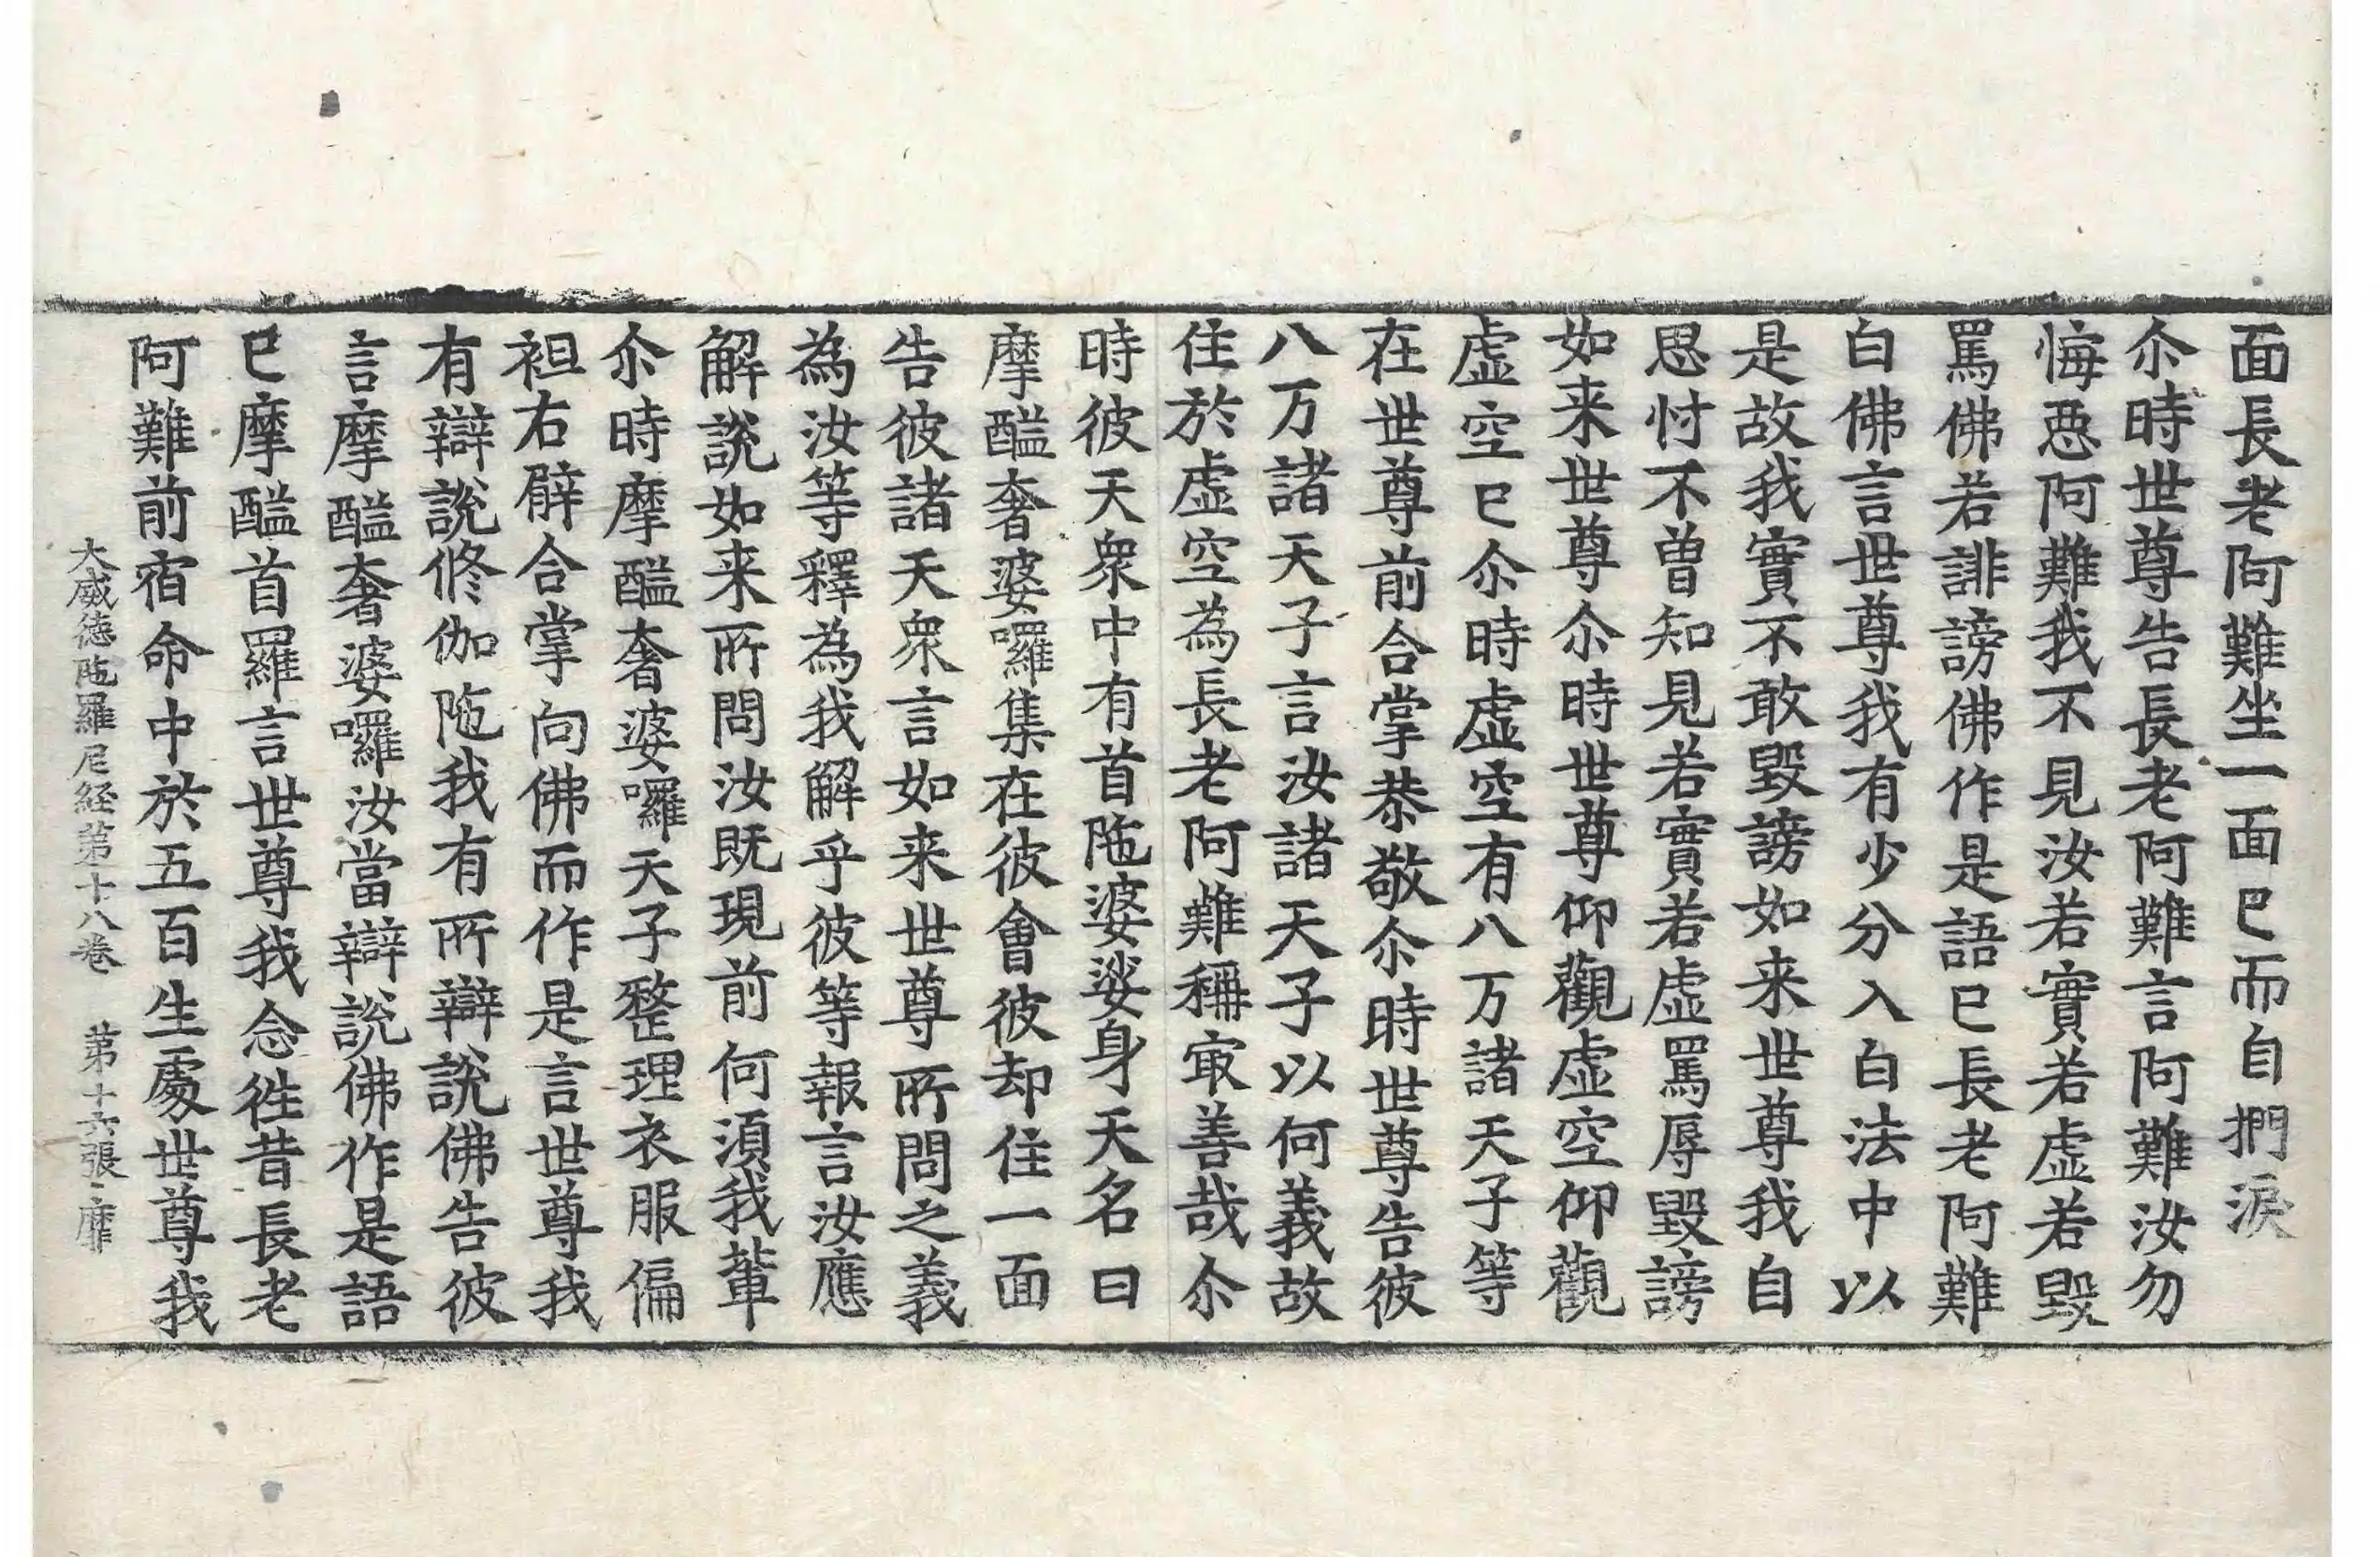 面長老阿難坐一面巳而自捫淚
尒時世尊告長老阿難言阿難汝勿
悔惡阿難我不見汝若實若虛若毀
罵佛若誹謗佛作是語巳長老阿難
白佛言世尊我有少分入白法中以
是故我實不敢毀謗如来世尊我自
思忖不曾知見若實若虛罵辱毀謗
如来世尊尒時世尊仰觀虛空仰觀
虛空巳尒時虛空有八万諸天子等
在世尊前合掌恭敬尒時世尊告彼
八万諸天子言汝諸天子以何義故
住於虛空為長老阿難稱㝡善哉尒
時彼天衆中有首陁婆娑身天名曰
摩醯奢婆囉集在彼會彼却住一面
告彼諸天衆言如来世尊所問之義
為汝等釋為我解乎彼等報言汝應
解說如来所問汝既現前何湏我軰
尒時摩醯奢婆囉天子整理衣服偏
袒右髆合掌向佛而作是言世尊我
有辯說修伽陁我有所辯說佛告彼
言摩醯奢婆囉汝當辯說佛作是語
巳摩醯首羅言世尊我念徃昔長老
阿難前宿命中於五百生處世尊我
大威德陁羅尼経第十八卷　第十六張　靡